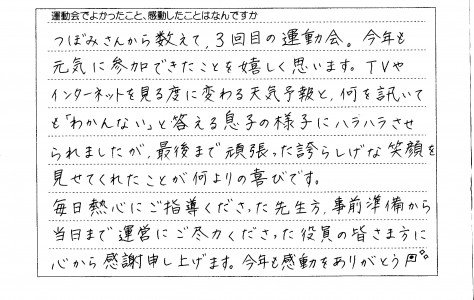 運動会でよかったこと、感動したことはなんですか
つぼみさんから数えて、3回目の運動会。今年も
元気に参加できたことを嬉しく思います。TVや
インターネットを見る度に変わる天気予報と、何を訊いて
も「わかんない」と答える息子の様子にハラハラさせ
られましたが、最後まで頑張った誇らしげな笑顔を
見せてくれたことが何よりの喜びです。
毎日熱心にご指導くださった先生方、事前準備から
当日まで運営にご尽力くださった役員の皆さま方に
心から感謝申し上げます。今年も感動をありがとう